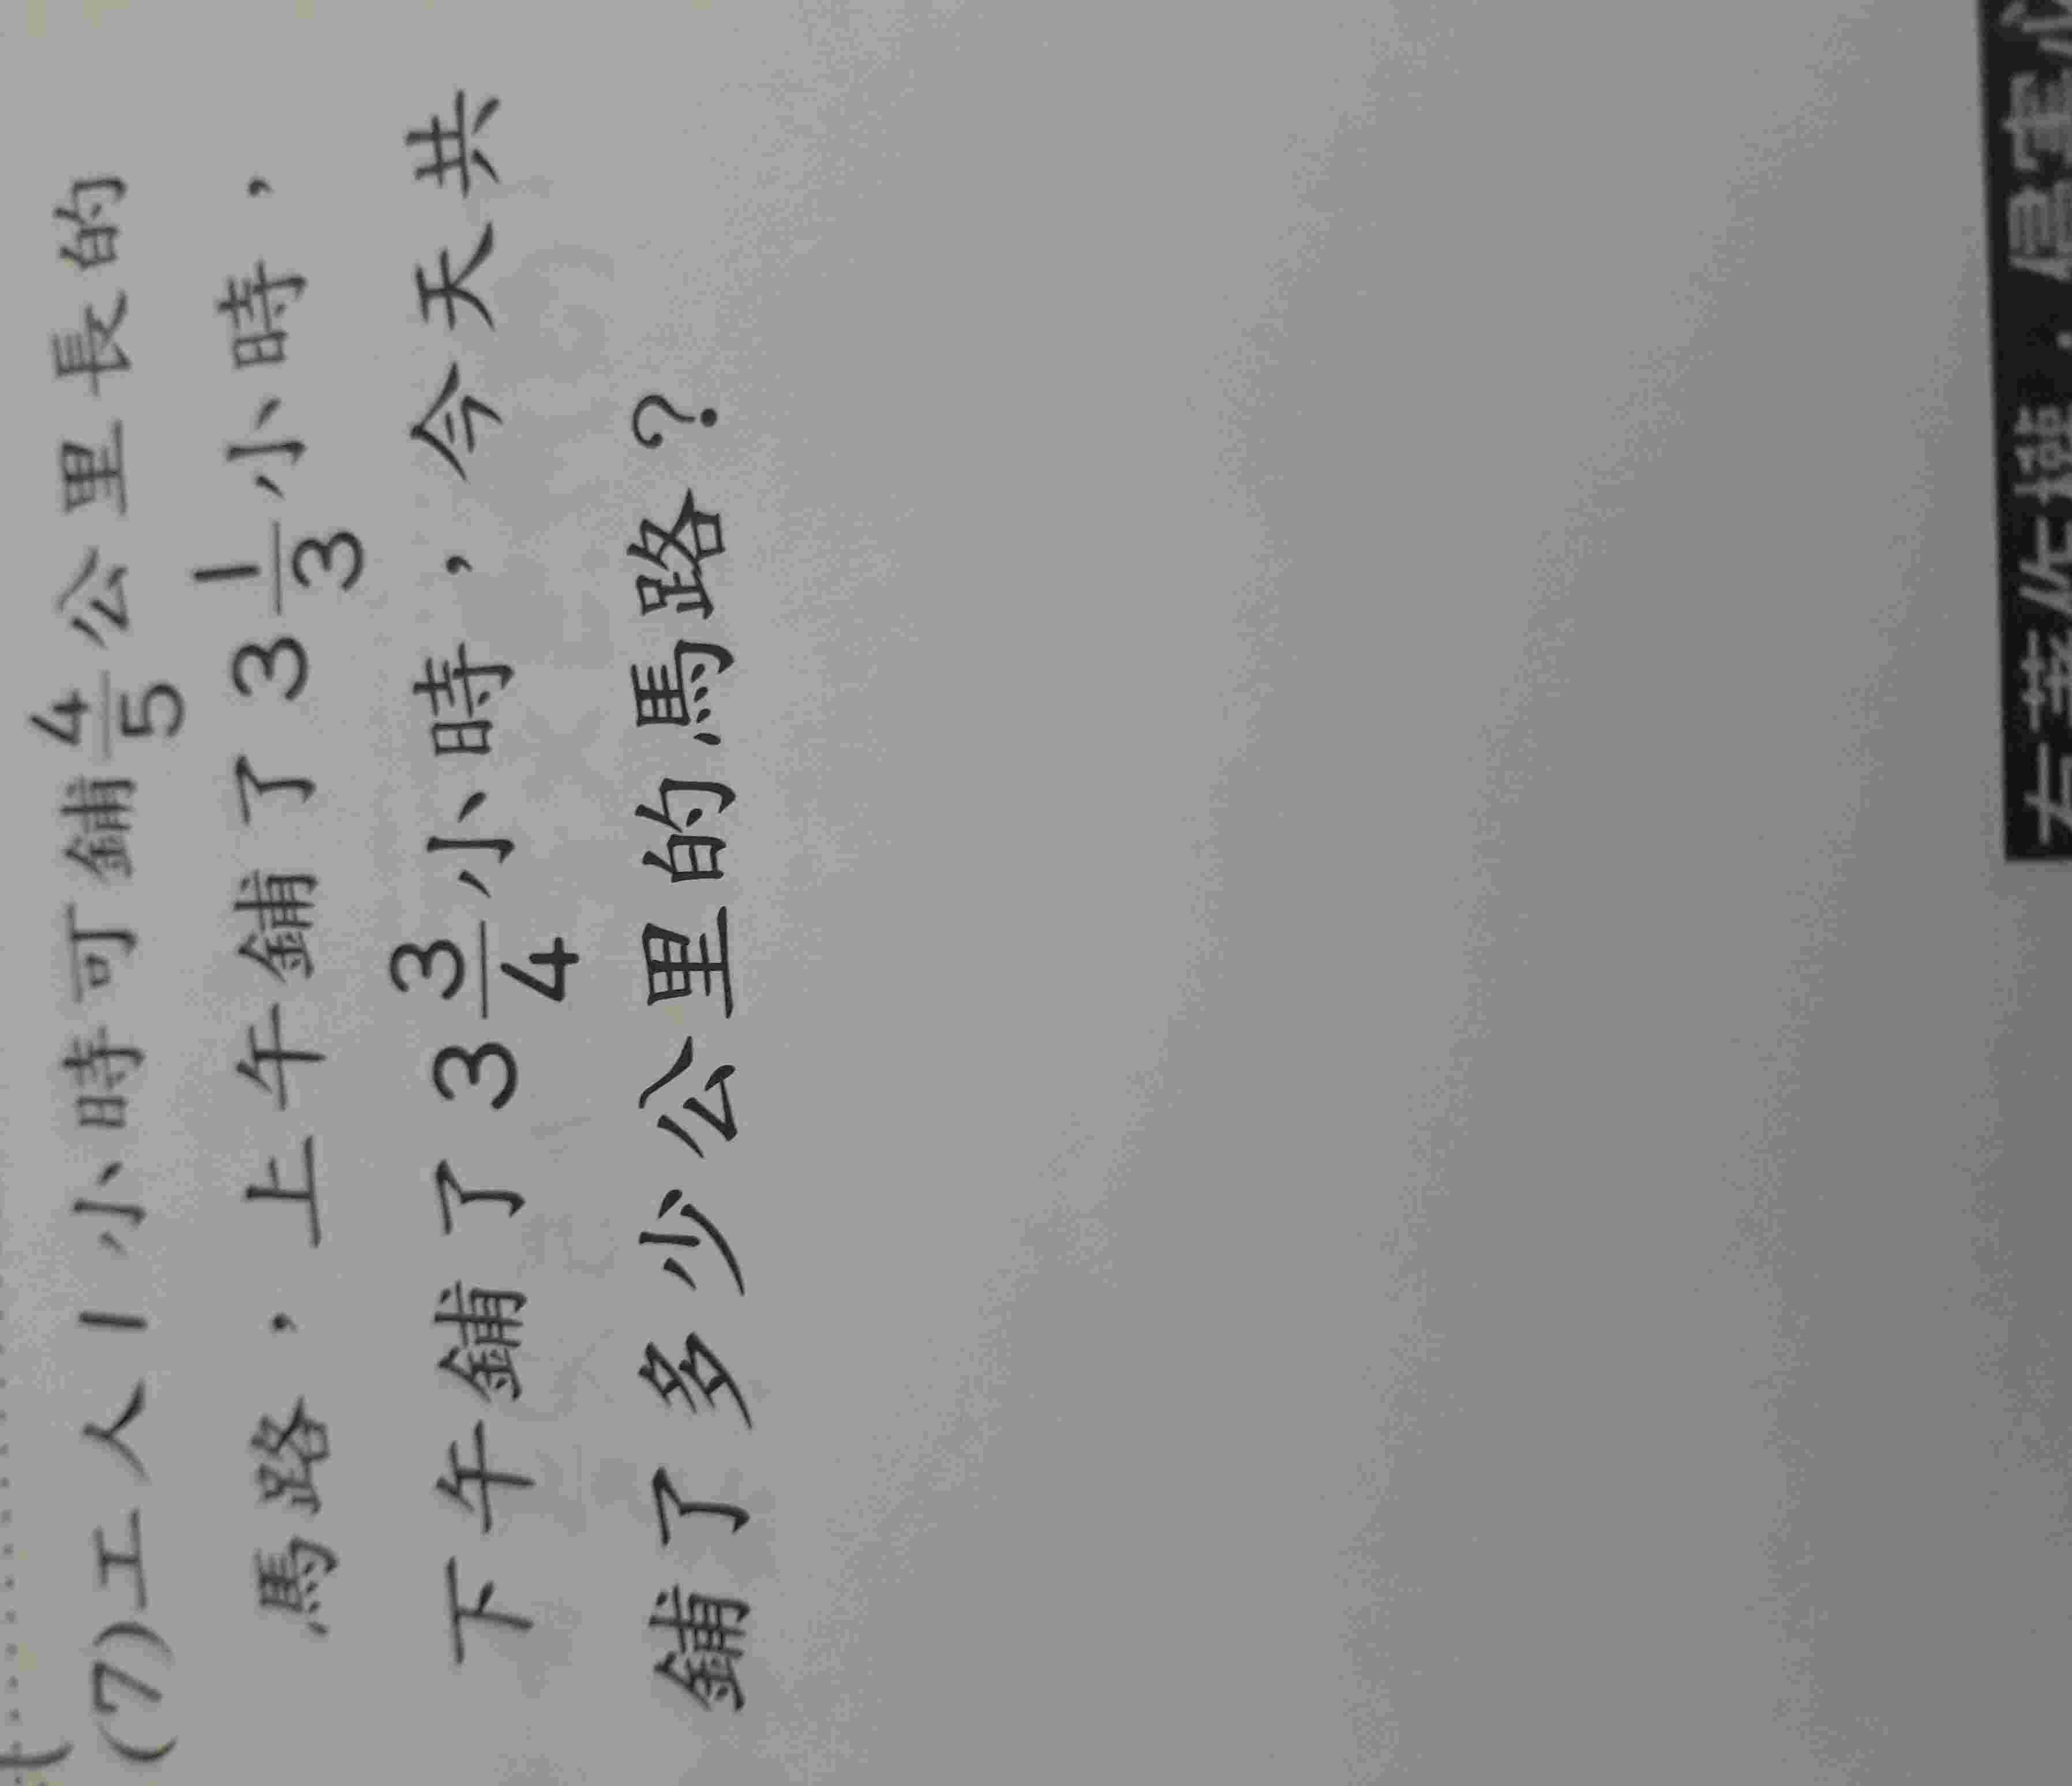 (7)工人1小時可鋪4/5公里長的
馬路，上午鋪了3 1/3小時，
下午鋪了3 3/4小時，今天共
鋪了多少公里的馬路？